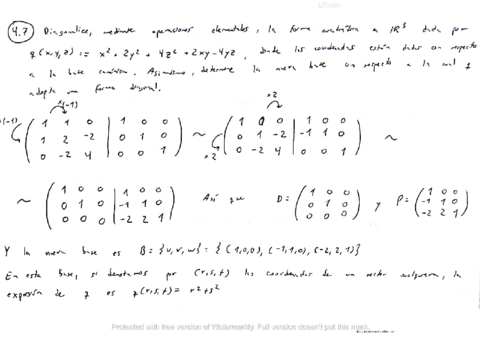 4.7 Diagonalice, mediante operaciones elementales, la forma cuadrática en IR³ dada por
q(x,y,z) := x² + 2y² + 4z² + 2xy - 4yz, donde las coordenadas están dadas con respecto
a la base canónica. Asimismo, determine la nueva base con respecto a la cual q
adopta una forma diagonal.
x(-1) x2
x(-1) ( 1 1 0 | 1 0 0 ) ~ ( 1 0 0 | 1 0 0 ) ~
( 1 2 -2 | 0 1 0 ) ( 0 1 -2 | -1 1 0 )
( 0 -2 4 | 0 0 1 ) x2 ( 0 -2 4 | 0 0 1 )
~ ( 1 0 0 | 1 0 0 ) Así que D = ( 1 0 0 ) y P = ( 1 0 0 )
( 0 1 0 | -1 1 0 ) ( 0 1 0 ) ( -1 1 0 )
( 0 0 0 | -2 2 1 ) ( 0 0 0 ) ( -2 2 1 )
Y la nueva base es B = {u, v, w} = {(1,0,0), (-1,1,0), (-2,2,1)}
En esta base, si denotamos por (r,s,t) las coordenadas de un vector cualquiera, la
expresión de q es q(r,s,t) = r² + s²
Protected with free version of Watermarkly. Full version doesn't put this mark.